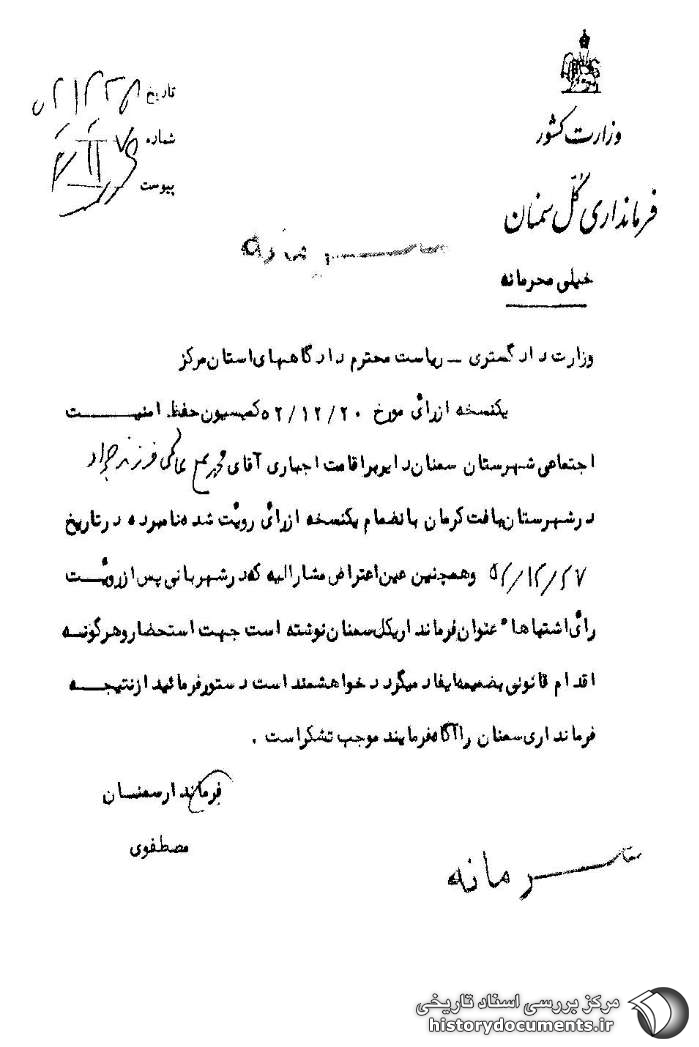 وزارت کشور
فرمانداری کل سمنان
تاریخ
شماره
پیوست
خیلی محرمانه
وزارت دادگستری ـ ریاست محترم دادگاههای استان مرکز
یکنسخه از رأی مورخ ۵۲/۱۲/۲۰ کمیسیون حفظ امنیت
اجتماعی شهرستان سمنان دایر براقامت اجباری آقای فرزند جواد
در شهرستان بافت کرمان بانضمام یکنسخه از رأی رویت شده نامبرده در تاریخ
۵۲/۱۲/۲۷ و همچنین عین اعتراض مشارالیه که در شهربانی پس از رویت
رأی اشتباهاً عنوان فرمانداریکل سمنان نوشته است جهت استحضار و هرگونه
اقدام قانونی بضمیمه ایفاد میگردد خواهشمند است دستور فرمائید از نتیجه
فرمانداری سمنان را آگاه فرمایند موجب تشکر است .
فرماندار سمنان
مصطفوی
مرکز بررسی اسناد تاریخی
historydocuments.ir